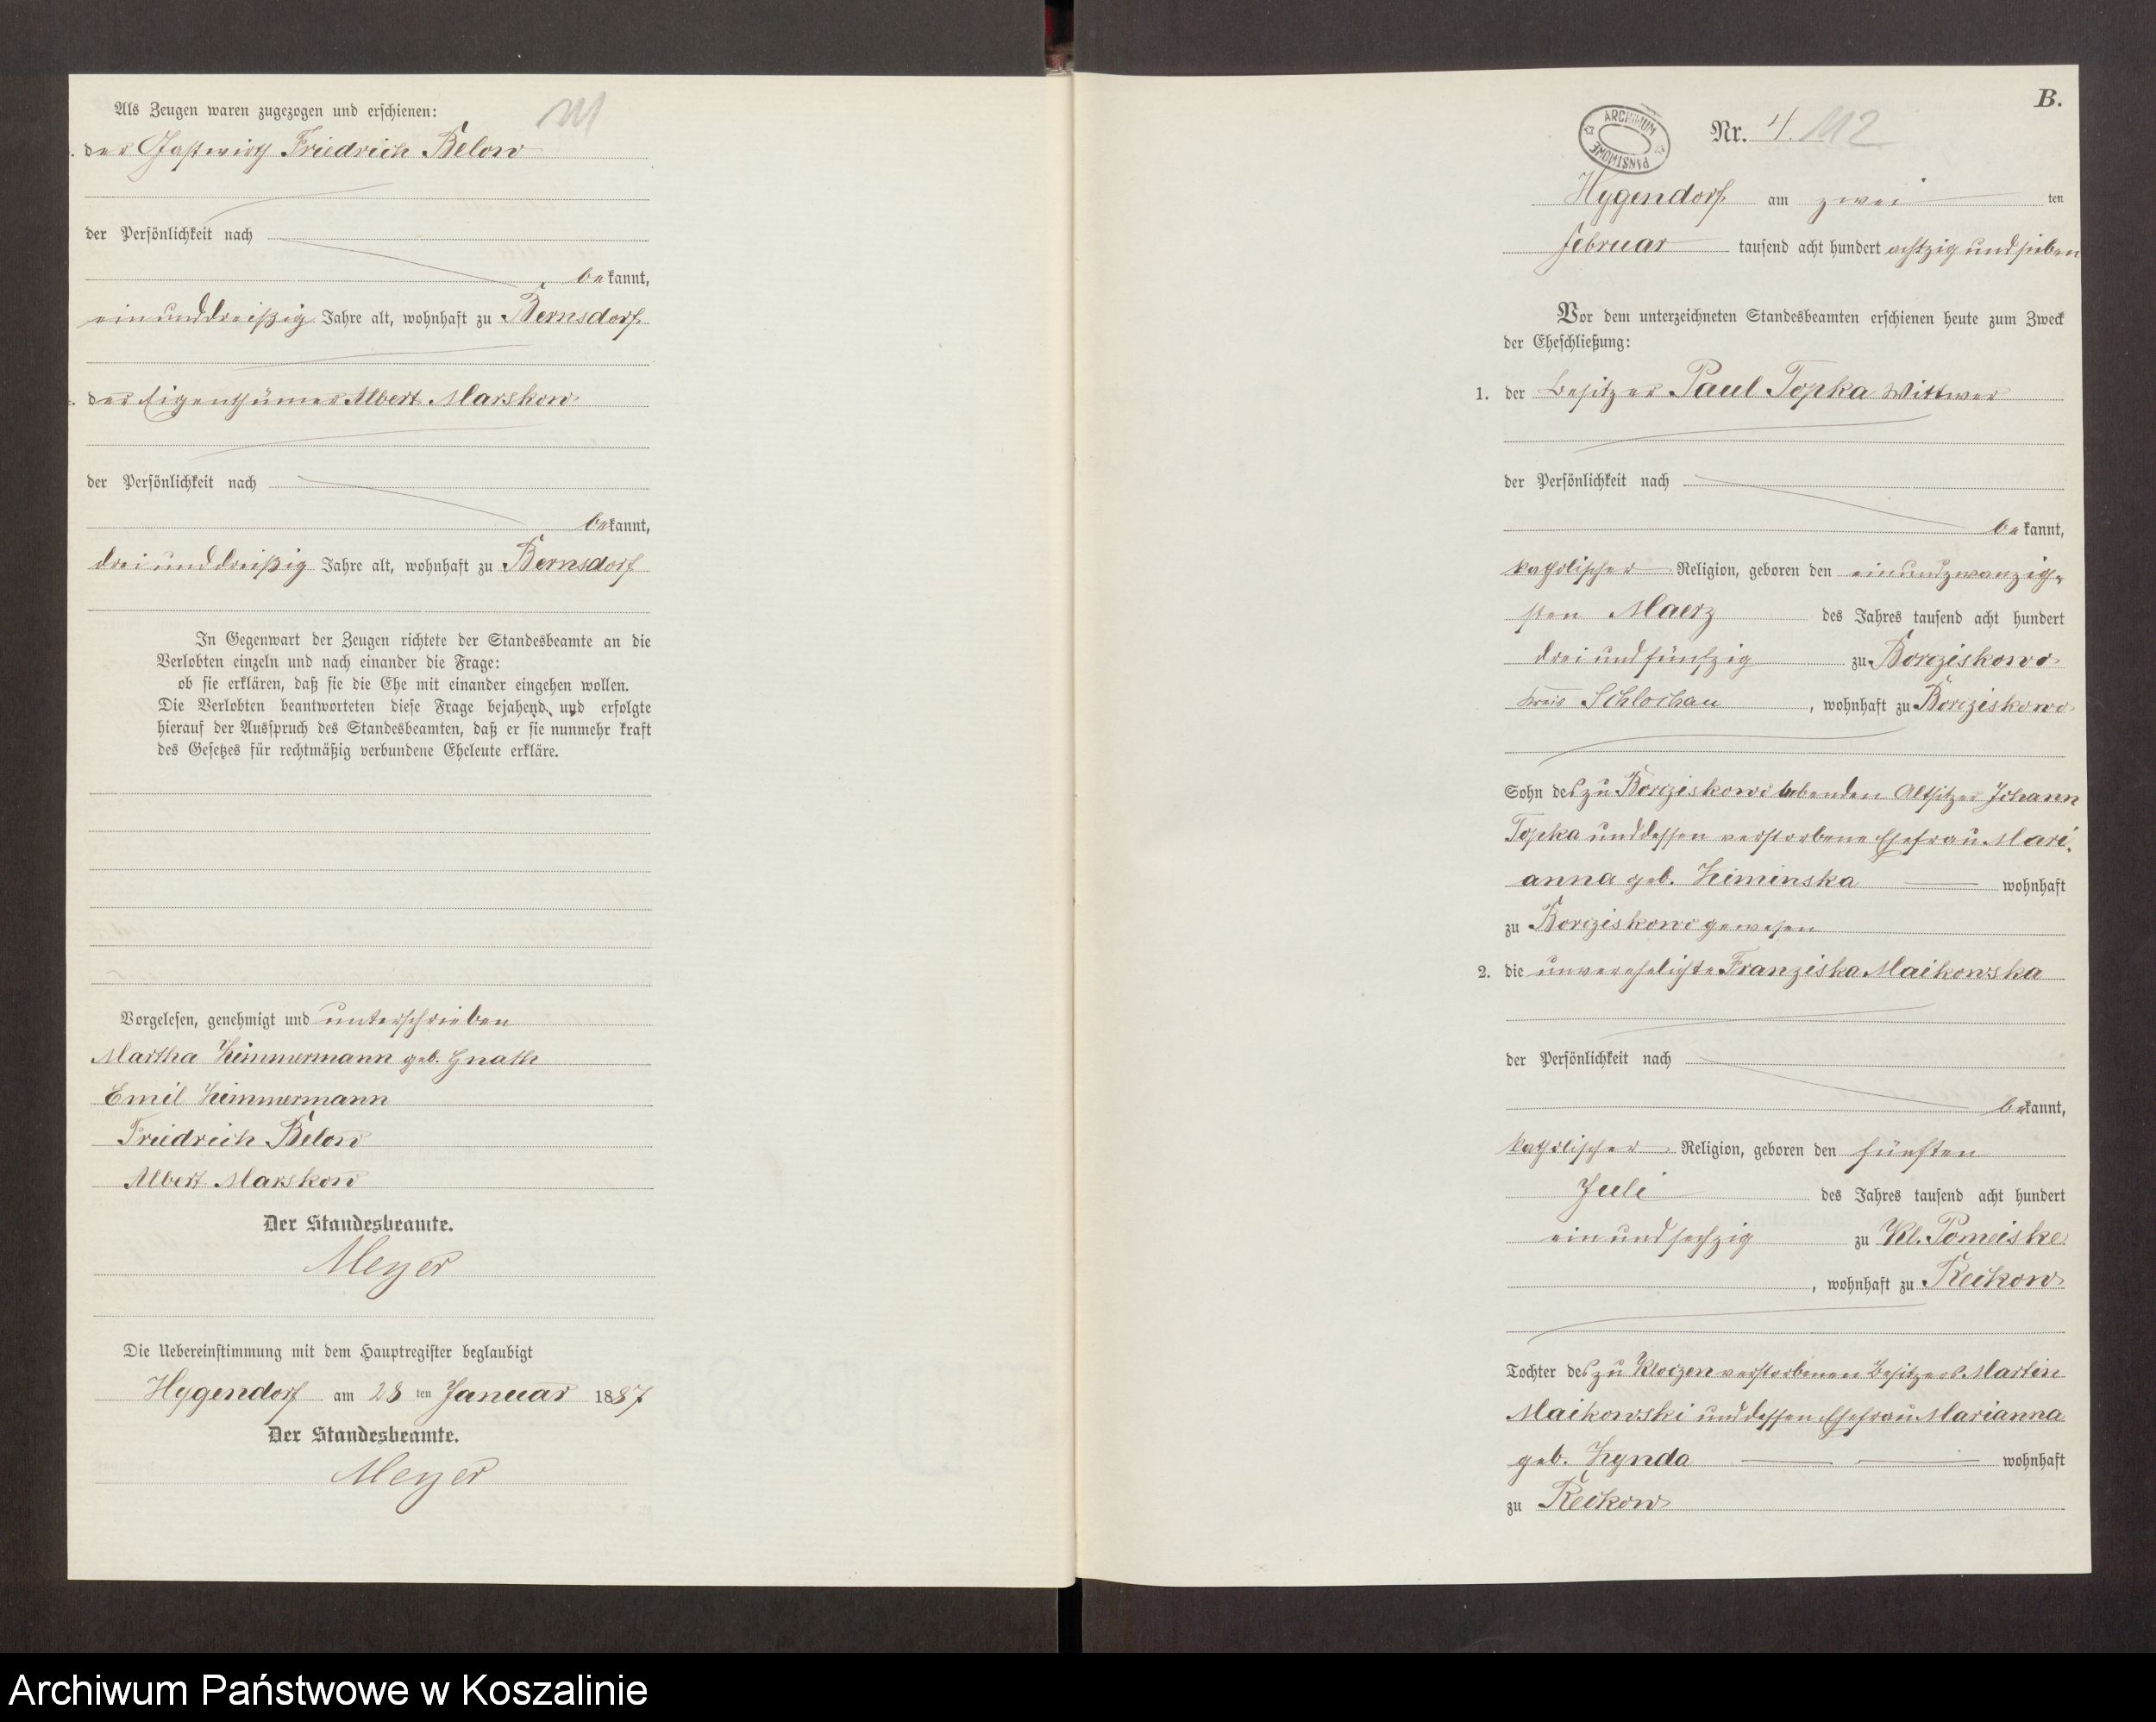 Als Zeugen waren zugezogen und erschienen:
111
der Gastwirth Friedrich Below
der Persönlichkeit nach
bekannt,
einunddreißig Jahre alt, wohnhaft zu Bernsdorf
der Eigenthümer Albert Marskow
der Persönlichkeit nach
bekannt,
dreiunddreißig Jahre alt, wohnhaft zu Bernsdorf
In Gegenwart der Zeugen richtete der Standesbeamte an die
Verlobten einzeln und nach einander die Frage:
ob sie erklären, daß sie die Ehe mit einander eingehen wollen.
Die Verlobten beantworteten diese Frage bejahend und erfolgte
hierauf der Ausspruch des Standesbeamten, daß er sie nunmehr kraft
des Gesetzes für rechtmäßig verbundene Eheleute erkläre.
Vorgelesen, genehmigt und unterschrieben
Martha Zimmermann geb. Gnath
Emil Zimmermann
Friedrich Below
Albert Marskow
Der Standesbeamte.
Meyer
Die Uebereinstimmung mit dem Hauptregister beglaubigt
Hygendorf am 28 ten Januar 1887
Der Standesbeamte.
Meyer
B.
ARCHIWUM PAŃSTWOWE
Nr. 4. 112
Hygendorf am zwei ten
Februar tausend acht hundert achtzig und sieben
Vor dem unterzeichneten Standesbeamten erschienen heute zum Zweck
der Eheschließung:
1. der Besitzer Paul Topka Wittwer
der Persönlichkeit nach
bekannt,
katholischer Religion, geboren den einundzwanzig-
sten Maerz des Jahres tausend acht hundert
drei und fünfzig zu Borcziskowo
Kreis Schlochau, wohnhaft zu Borcziskowo
Sohn des zu Borcziskowo lebenden Altsitzer Johann
Topka und dessen verstorbene Ehefrau Mari-
anna geb. Ziminska wohnhaft
zu Borcziskowo gewesen
2. die unverehelichte Franziska Maikowska
der Persönlichkeit nach
bekannt,
katholischer Religion, geboren den fünften
Juli des Jahres tausend acht hundert
ein und sechzig zu Kl. Pomeiske
, wohnhaft zu Reckow
Tochter des zu Kloczen verstorbenen Besitzers Martin
Maikowski und dessen Ehefrau Marianna
geb. Zynda wohnhaft
zu Reckow
Archiwum Państwowe w Koszalinie